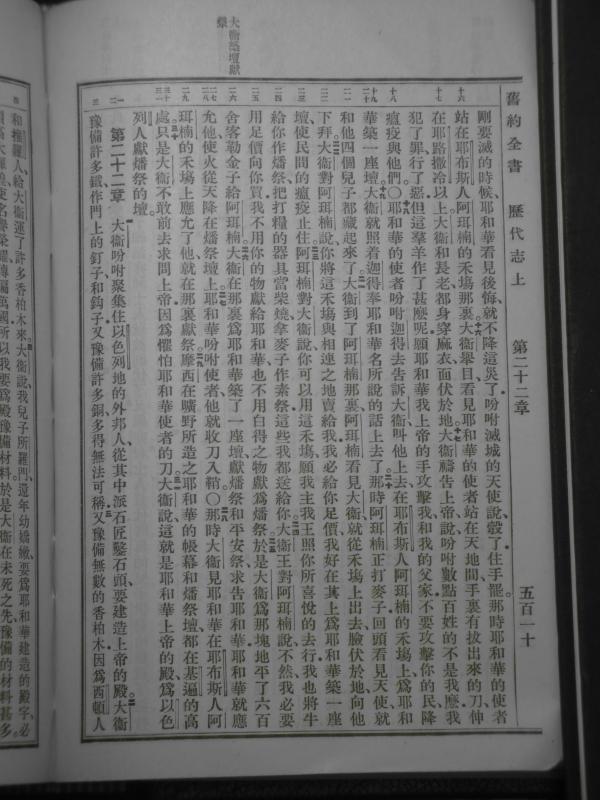 舊約全書
歷代志上
第二十二章
五百一十
大衞築壇獻祭
剛要滅的時候、耶和華看見後悔、就不降這災了、吩咐滅城的天使說、彀了、住手罷。那時耶和華的使者
站在耶布斯人阿珥楠的禾場那裏、大衞舉目看見耶和華的使者站在天地間、手裏有拔出來的刀、伸
在耶路撒冷以上、大衞和長老都身穿麻衣、面伏於地、大衞禱告上帝說、吩咐數點百姓的不是我麼、我
犯了罪行了惡、但這羣羊作了甚麼呢、願耶和華我上帝的手攻擊我和我的父家、不要攻擊你的民、降
瘟疫與他們○耶和華的使者吩咐迦得去告訴大衞、叫他上去、在耶布斯人阿珥楠的禾場上、爲耶和
華築一座壇、大衞就照着迦得奉耶和華名所說的話上去了、那時阿珥楠正打麥子、回頭看見天使、就
和他四個兒子都藏起來了、大衞到了阿珥楠那裏、阿珥楠看見大衞、就從禾場上出去、臉伏於地向他
下拜、大衞對阿珥楠說、你將這禾場與相連之地賣給我、我必給你足價、我好在其上爲耶和華築一座
壇、使民間的瘟疫止住、阿珥楠對大衞說、你可以用這禾場、願我主我王照你所喜悅的去行、我也將牛
給你作燔祭、把打糧的器具當柴燒、拿麥子作素祭、這些我都送給你、大衞王對阿珥楠說、不然、我必要
用足價向你買、我不用你的物獻給耶和華、也不用白得之物獻爲燔祭、於是大衞爲那塊地平了六百
舍客勒金子給阿珥楠、大衞在那裏爲耶和華築了一座壇、獻燔祭和平安祭、求告耶和華、耶和華就應
允他、使火從天降在燔祭壇上、耶和華吩咐使者、他就收刀入鞘○那時大衞見耶和華在耶布斯人阿
珥楠的禾場上應允了他、就在那裏獻祭、摩西在曠野所造之耶和華的帳幕和燔祭壇、都在基遍的高
處、只是大衞不敢前去求問上帝、因爲懼怕耶和華使者的刀、大衞說、這就是耶和華上帝的殿、爲以色
列人獻燔祭的壇。
第二十二章 大衞吩咐聚集住以色列地的外邦人、從其中派石匠鑿石頭、要建造上帝的殿、大衞
豫備許多鐵作門上的釘子和鈎子、又豫備許多銅、多得無法可稱、又豫備無數的香柏木、因爲西頓人
和推羅人給大衞運了許多香柏木來、大衞說、我兒子所羅門還年幼嬌嫩、要爲耶和華建造的殿宇、必
所以我要爲殿豫備材料、於是大衞在未死之先、豫備的材料甚多